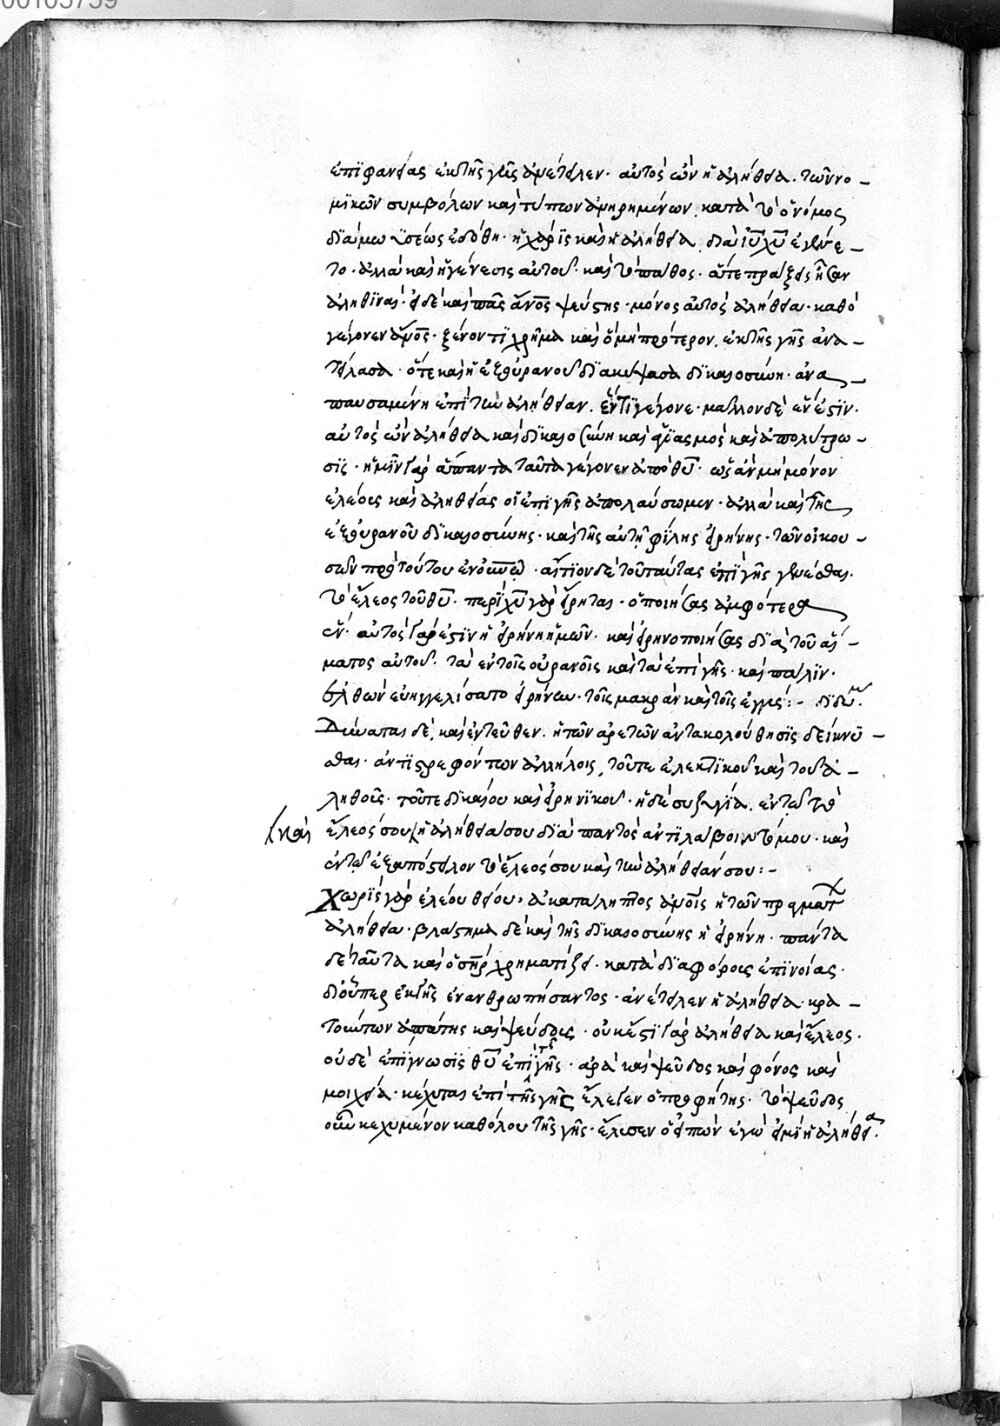 00105759
ἐπιφανείας ἐκ τῆς γῆς ἀνέτειλεν· αὐτὸς ὢν ἡ ἀλήθεια· τῶν νο-
μικῶν συμβόλων καὶ τύπων ἀνῃρημένων. κατὰ τὸ ὁ νόμος
διὰ μωϋσέως ἐδόθη· ἡ χάρις καὶ ἡ ἀλήθεια διὰ ἰῦ χῦ ἐγένε-
το· ἀλλὰ καὶ ἡ γένεσις αὐτοῦ· καὶ τὸ πάθος· αἵ τε πράξεις ἦσαν
ἀληθιναί· εἰ δὲ καὶ πᾶς ἄνος ψεύστης· μόνος αὐτὸς ἀλήθεια· καθὸ
γέγονεν ἄνος· ξένον τι χρῆμα καὶ ὃ μὴ πρότερον. ἐκ τῆς γῆς ἀνα-
τείλασα· ὅτε καὶ ἡ ἐξ οὐρανοῦ διακύψασα δικαιοσύνη· ἀνα-
παυσαμένη ἐπὶ τὴν ἀλήθειαν. ἕν τι γέγονε· μᾶλλον δὲ ἕν ἐστιν·
αὐτὸς ὢν ἀλήθεια καὶ δικαιοσύνη καὶ ἁγιασμὸς καὶ ἀπολύτρω-
σις· ἡμῖν γὰρ ἅπαντα ταῦτα γέγονεν ἀπὸ θῦ· ὡς ἂν μὴ μόνον
ἐλέους καὶ ἀληθείας οἱ ἐπὶ γῆς ἀπολαύσωμεν· ἀλλὰ καὶ τῆς
ἐξ οὐρανοῦ δικαιοσύνης· καὶ τῆς αὐτῇ φίλης εἰρήνης· τῶν οἰκου-
σῶν πρὸ τούτου ἐν οὐνῶ· αἴτιον δὲ τοῦ ταύτας ἐπὶ γῆς γενέσθαι·
τὸ ἔλεος τοῦ θῦ· περὶ χῦ γὰρ εἴρηται· ὁ ποιήσας ἀμφότερα
ἕν· αὐτὸς γάρ ἐστιν ἡ εἰρήνη ἡμῶν· καὶ εἰρηνοποιήσας διὰ τοῦ αἵ-
ματος αὐτοῦ· τὰ ἐν τοῖς οὐρανοῖς καὶ τὰ ἐπὶ γῆς· καὶ πάλιν·
ἐλθὼν εὐηγγελίσατο εἰρήνην· τοῖς μακρὰν καὶ τοῖς ἐγγύς:-
Δύναται δὲ καὶ ἐντεῦθεν. ἡ τῶν ἀρετῶν ἀντακολούθησις δείκνυ-
σθαι· ἀντιστρεφόντων ἀλλήλοις, τοῦ τε ἐλεκτικοῦ καὶ τοῦ ἀ-
ληθοῦς· τοῦ τε δικαίου καὶ εἰρηνικοῦ· ἡ δὲ συζυγία. ἐν τῷ τὸ
καὶ ἔλεός σου ἡ ἀλήθειά σου διὰ παντὸς ἀντιλάβοιντό μου· καὶ
ἐν τῷ ἐξαπόστειλον τὸ ἔλεός σου καὶ τὴν ἀλήθειάν σου:-
Χωρὶς γὰρ ἐλέου θείου, ἀκατάληπτος ἀνοις ἡ τῶν πραγμάτ
ἀλήθεια· βλάστημα δὲ καὶ τῆς δικαιοσύνης ἡ εἰρήνη· πάντα
δὲ ταῦτα καὶ ὁ σηρ χρηματίζει· κατὰ διαφόρους ἐπινοίας·
διόπερ ἐκ γῆς ἐνανθρωπήσαντος· ἀνέτειλεν ἡ ἀλήθεια κρα-
τούντων ἀπάτης καὶ ψεύδους· οὐκ ἔστι γὰρ ἀλήθεια καὶ ἔλεος·
οὐδὲ ἐπίγνωσις θῦ ἐπὶ τῆς γῆς· ἀρὰ καὶ ψεῦδος καὶ φόνος καὶ
μοιχεία· κέχυται ἐπὶ τῆς γῆς ἔλεγεν ὁ προφήτης. τὸ ψεῦδος
οὖν κεχυμένον καθόλου τῆς γῆς· ἔλυσεν ὁ εἰπὼν ἐγώ εἰμι ἡ ἀλήθεια.